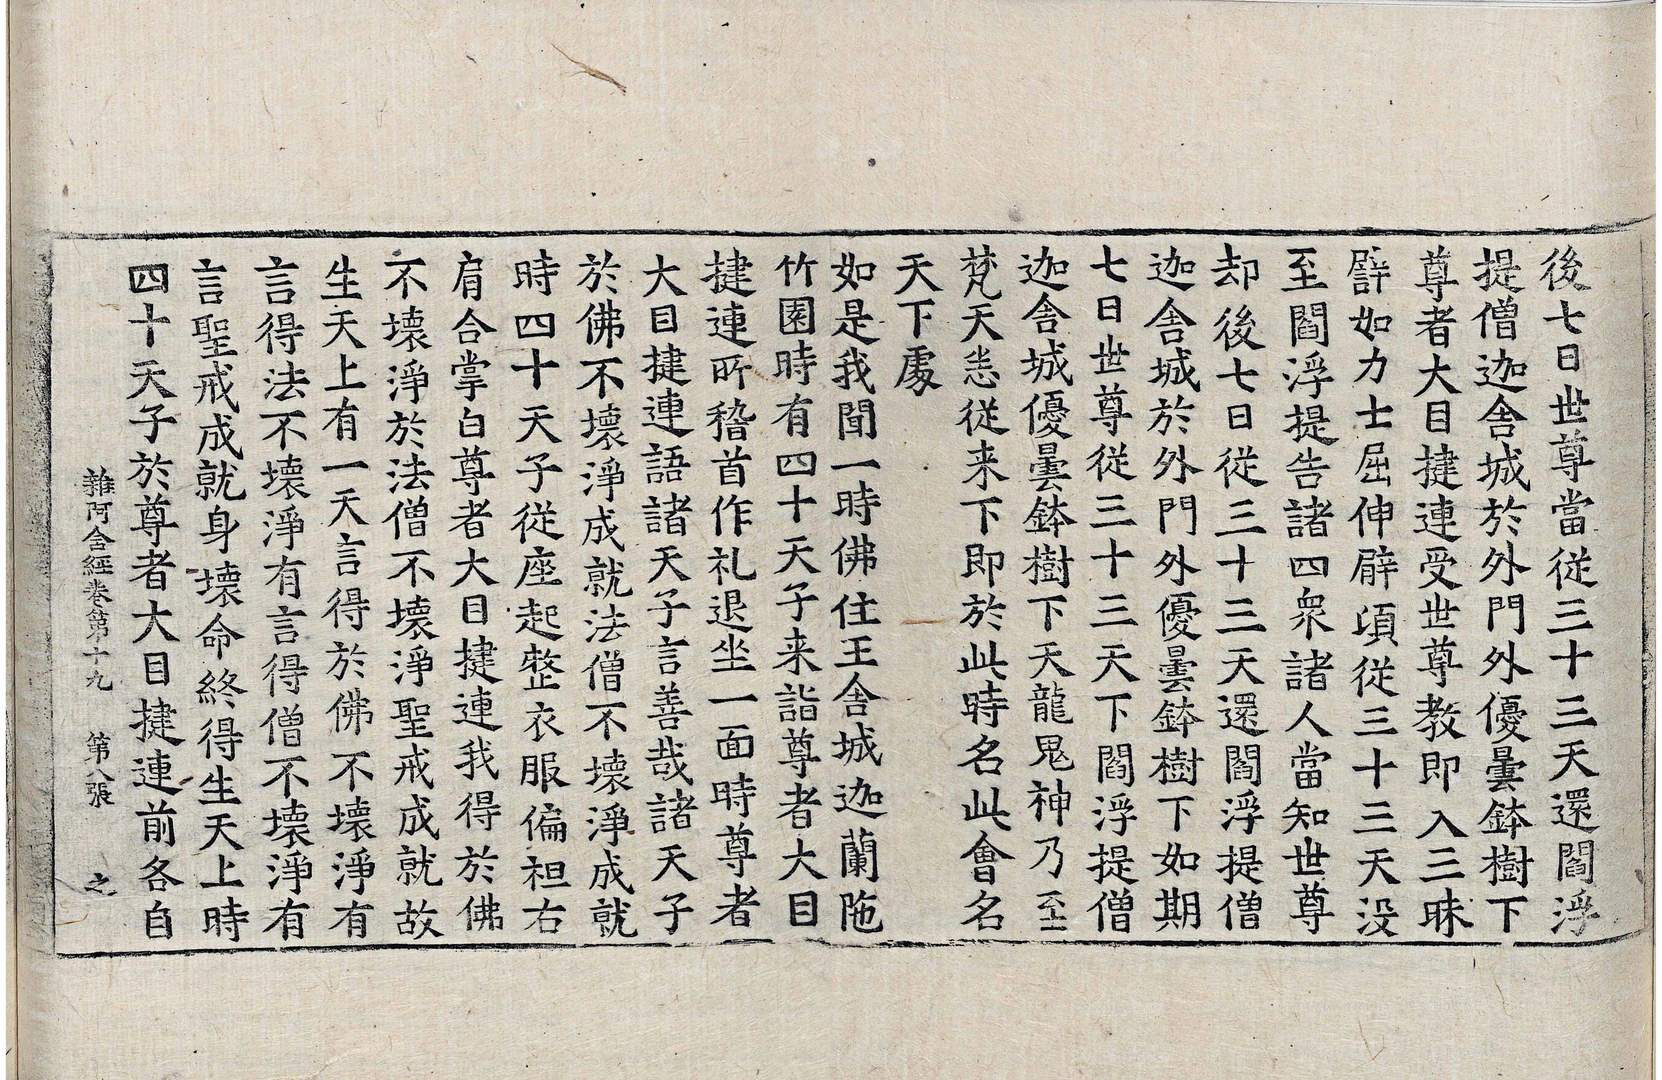 後七日世尊當從三十三天還閻浮
提僧迦舍城於外門外優曇鉢樹下
尊者大目揵連受世尊教即入三昧
譬如力士屈伸臂頃從三十三天没
至閻浮提告諸四衆諸人當知世尊
却後七日従三十三天還閻浮提僧
迦舍城於外門外優曇鉢樹下如期
七日世尊従三十三天下閻浮提僧
迦舍城優曇鉢樹下天龍鬼神乃至
梵天悉従来下即於此時名此會名
天下處
如是我聞一時佛住王舍城迦蘭陁
竹園時有四十天子来詣尊者大目
揵連所稽首作礼退坐一面時尊者
大目揵連語諸天子言善哉諸天子
於佛不壞淨成就法僧不壞淨成就
時四十天子従座起整衣服偏袒右
肩合掌白尊者大目揵連我得於佛
不壞淨於法僧不壞淨聖戒成就故
生天上有一天言得於佛不壞淨有
言得法不壞淨有言得僧不壞淨有
言聖戒成就身壞命終得生天上時
四十天子於尊者大目揵連前各自
雜阿含經卷第十九 第八張 之